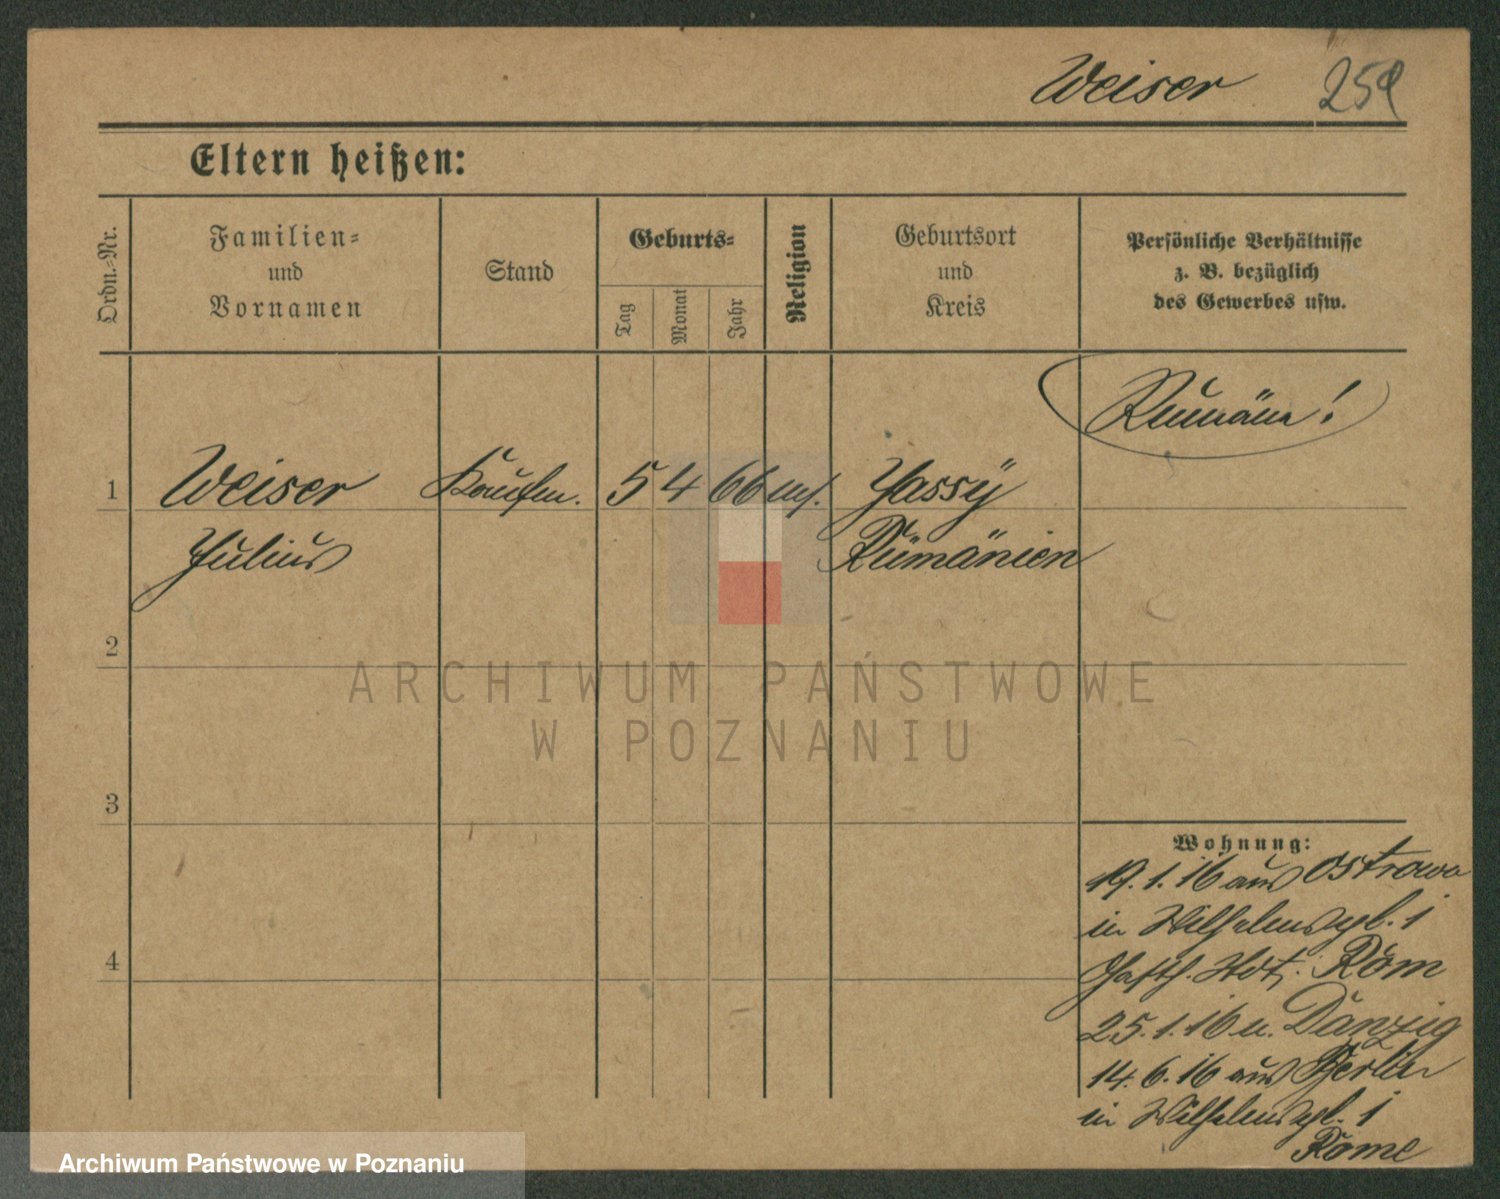 Weiser 259
Eltern heißen:
Ordn.-Nr.
Familien- und Vornamen
Stand
Geburts-
Tag
Monat
Jahr
Religion
Geburtsort und Kreis
Persönliche Verhältnisse
z. B. bezüglich
des Gewerbes usw.
Rumäne!
1 Weiser Kaufm. 5 4 66 Yassÿ
Julius Rümänien
2
3
4
Wohnung:
19.1.16 aus Ostrowo
in Wilhelmspl. 1
Gasth. Hot. Rom
25.1.16 n. Danzig
14.6.16 aus Berlin
in Wilhelmspl. 1
Rome
ARCHIWUM PAŃSTWOWE
W POZNANIU
Archiwum Państwowe w Poznaniu